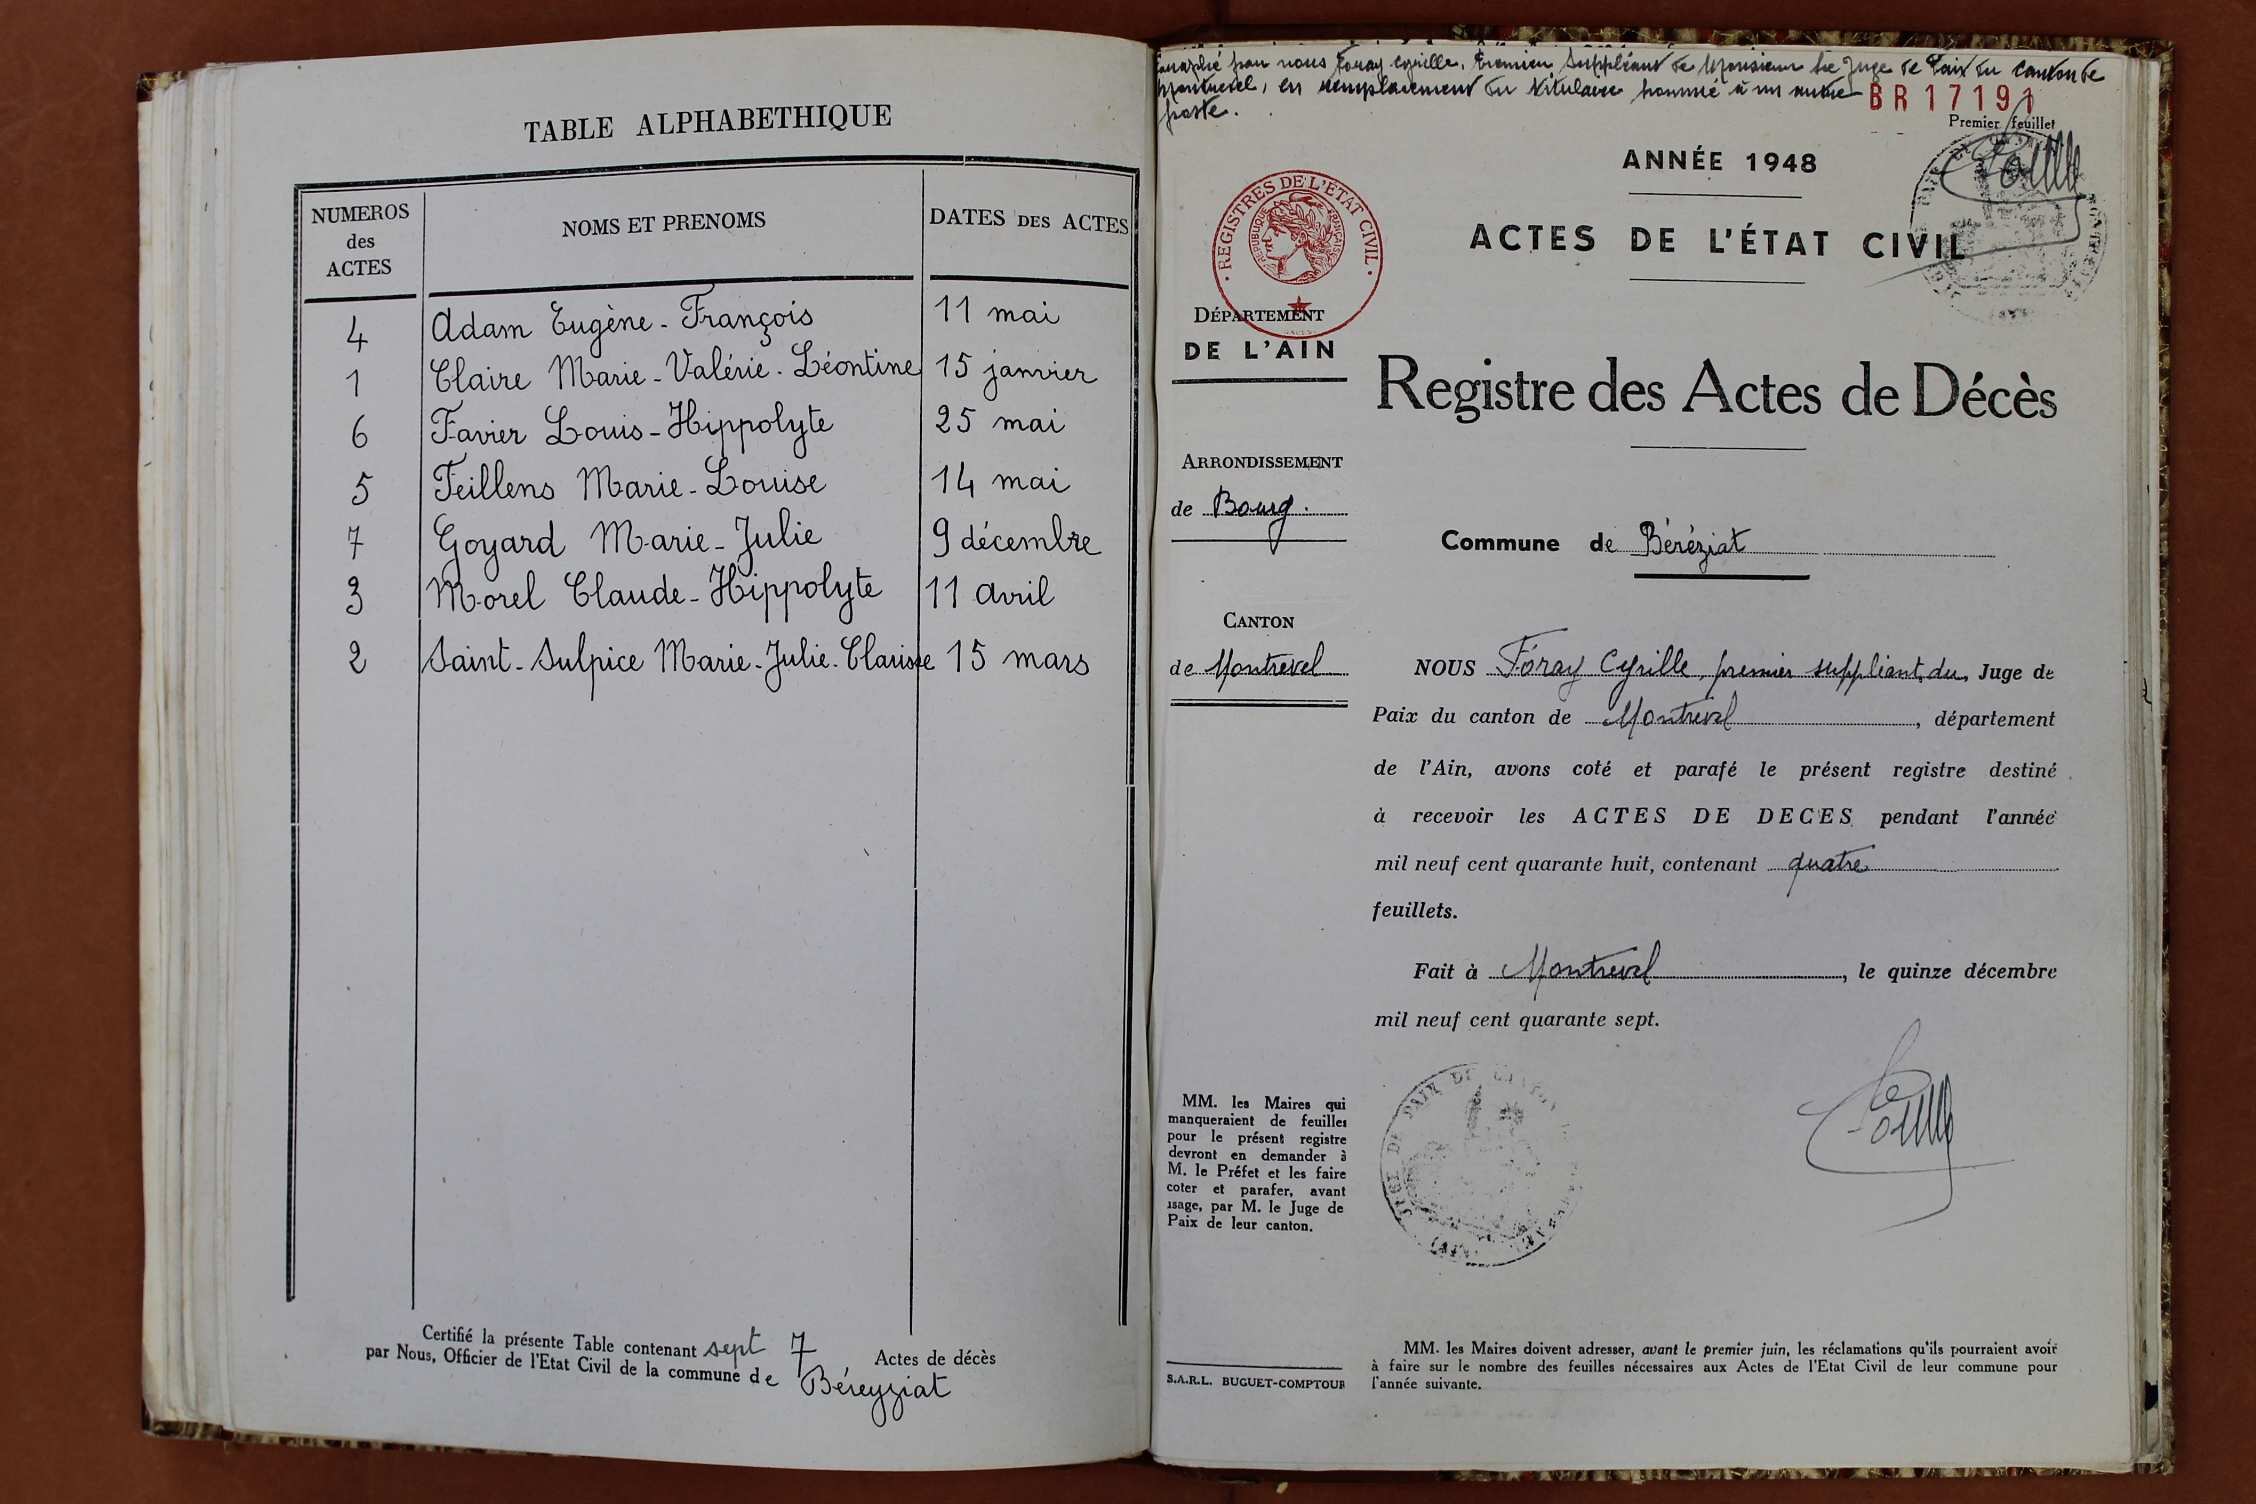 TABLE ALPHABETHIQUE
NUMEROS des ACTES | NOMS ET PRENOMS | DATES DES ACTES
4 | Adam Eugène - François | 11 mai
1 | Claire Marie - Valérie - Léontine | 15 janvier
6 | Favier Louis - Hippolyte | 25 mai
5 | Feillens Marie - Louise | 14 mai
7 | Goyard Marie - Julie | 9 décembre
3 | Morel Claude - Hippolyte | 11 avril
2 | Saint - Sulpice Marie - Julie - Clarisse | 15 mars
Certifié la présente Table contenant sept 7 Actes de décès
par Nous, Officier de l'Etat Civil de la commune de Béreyziat
par nous Foray Cyrille, Premier Suppléant de Monsieur le Juge de Paix du canton de
Montrevel, en remplacement du titulaire nommé à un autre
poste.
BR 17191
Premier feuillet
ANNÉE 1948
ACTES DE L'ÉTAT CIVIL
REGISTRES DE L'ÉTAT CIVIL
RÉPUBLIQUE FRANÇAISE
DÉPARTEMENT
DE L'AIN
Registre des Actes de Décès
ARRONDISSEMENT
de Bourg.
Commune de Béréziat
CANTON
de Montrevel
NOUS Foray Cyrille, premier suppliant, du, Juge de
Paix du canton de Montrevel, département
de l'Ain, avons coté et parafé le présent registre destiné
à recevoir les ACTES DE DECES pendant l'année
mil neuf cent quarante huit, contenant quatre
feuillets.
Fait à Montrevel, le quinze décembre
mil neuf cent quarante sept.
MM. les Maires qui
manqueraient de feuilles
pour le présent registre
devront en demander à
M. le Préfet et les faire
coter et parafer, avant
usage, par M. le Juge de
Paix de leur canton.
S.A.R.L. BUGUET-COMPTOUR
MM. les Maires doivent adresser, avant le premier juin, les réclamations qu'ils pourraient avoir
à faire sur le nombre des feuilles nécessaires aux Actes de l'Etat Civil de leur commune pour
l'année suivante.